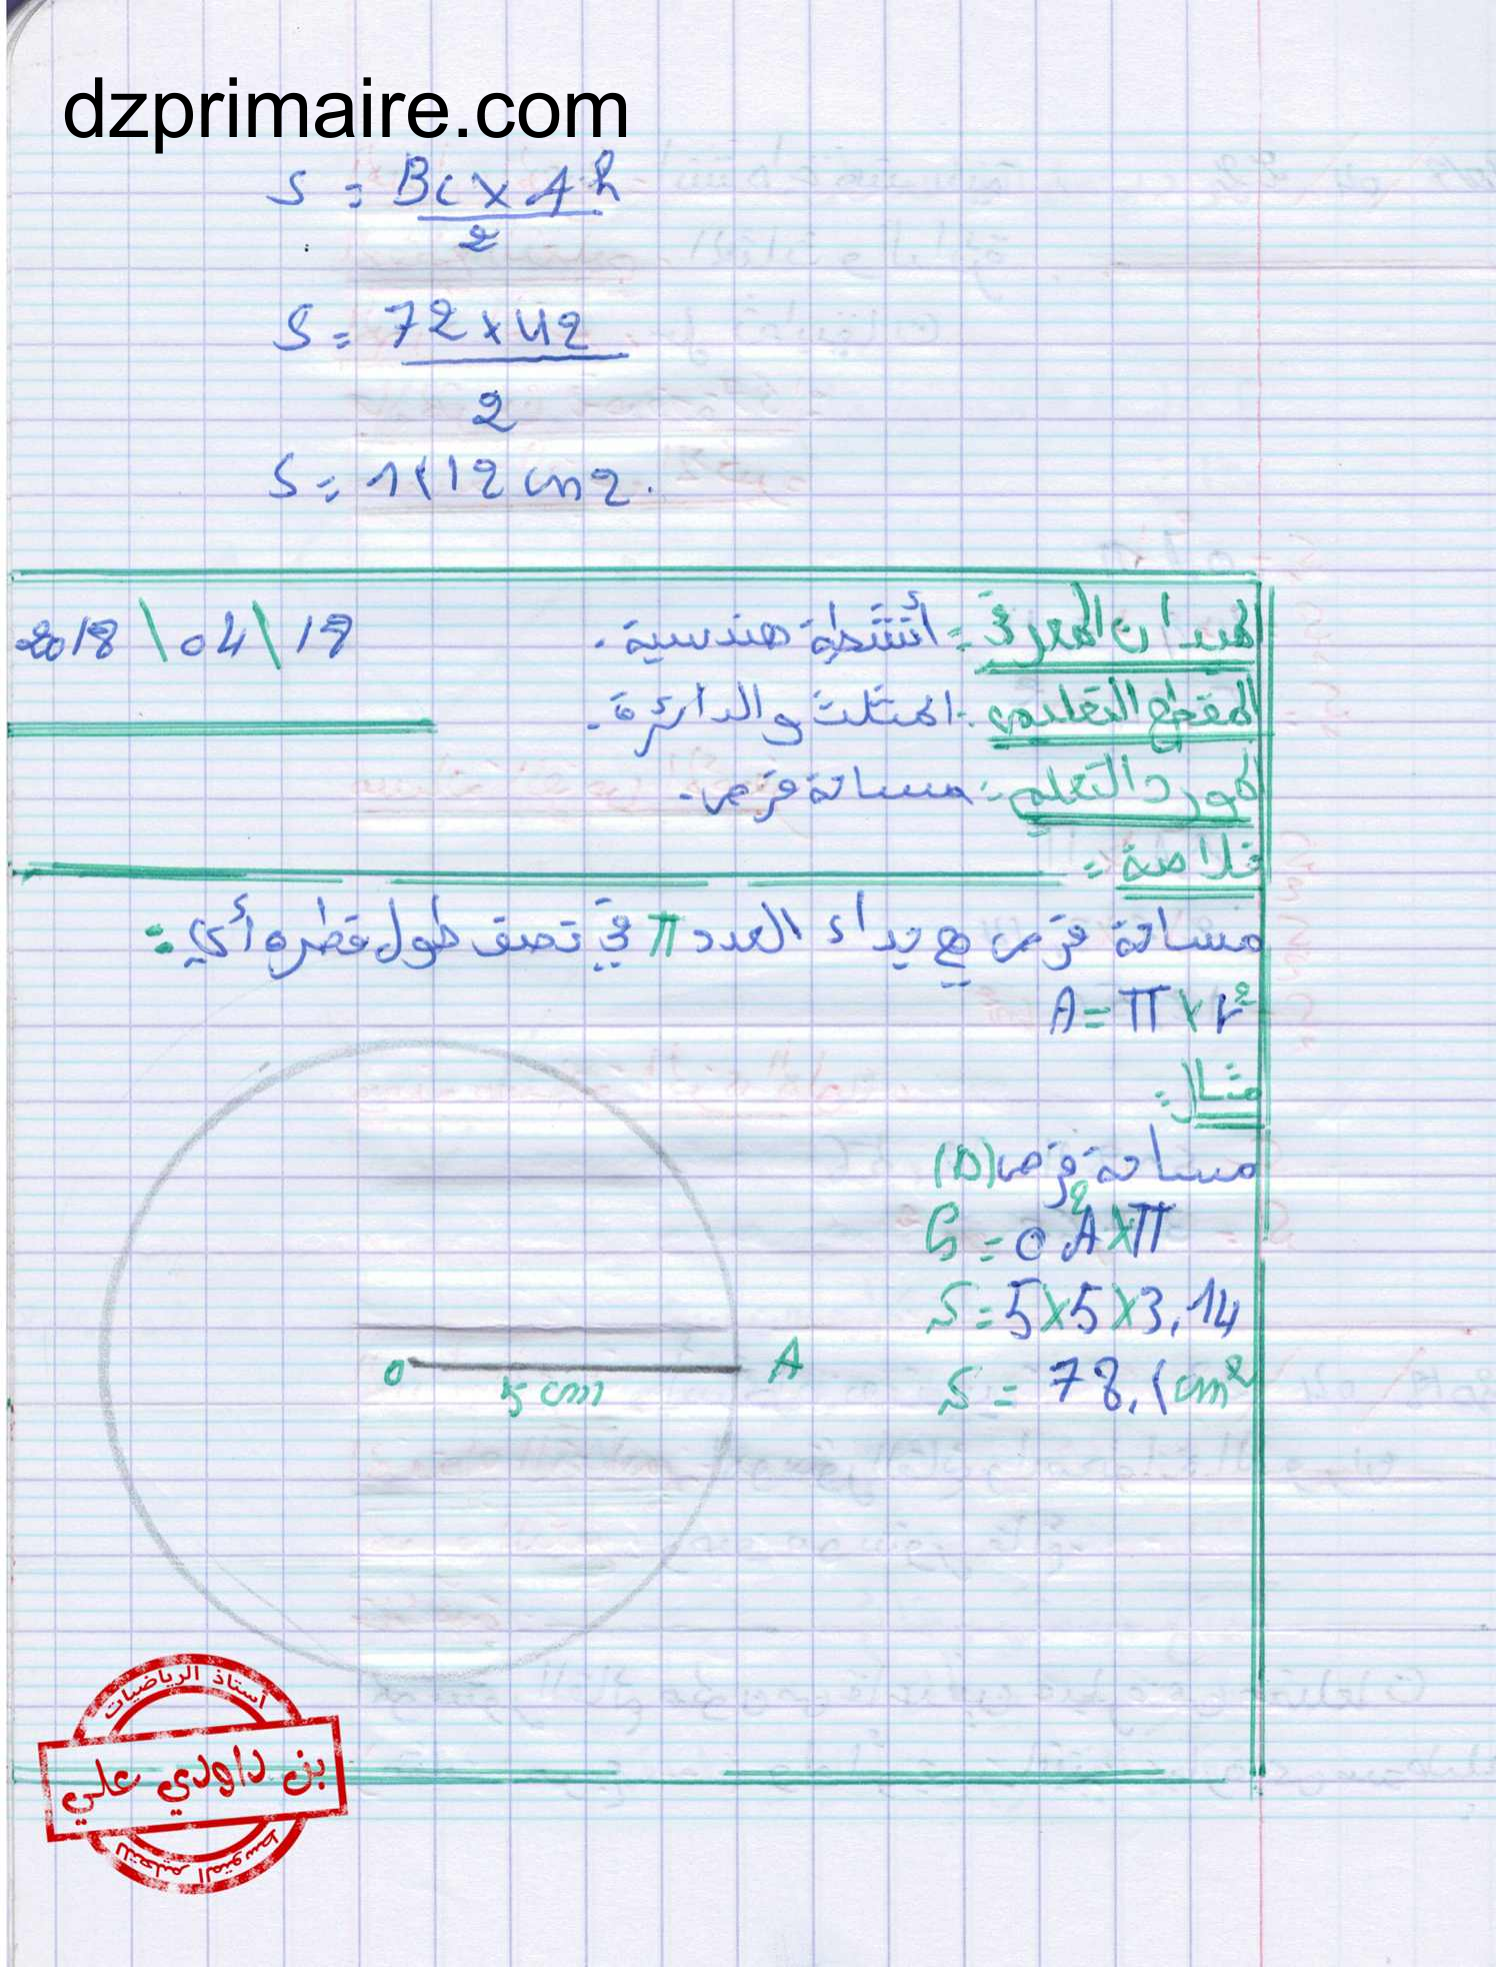 dzprimaire.com
S = BC × Ah
2
S = 72 × 42
2
S = 1512 cm2.
الميدان المعرفي : أنشطة هندسية. 2018 \ 04 \ 18
المقطع التعلمي : المثلث والدائرة.
المورد التعلمي : مساحة قرص.
خلاصة :
مساحة قرص هي جداء العدد π في نصف طول قطره أي :
A = π × r²
مثال :
مساحة قرص (D)
S = OA² × π
S = 5 × 5 × 3,14
S = 78,5 cm²
O A
5 cm
أستاذ الرياضيات
بن داودي علي
للتعليم المتوسط